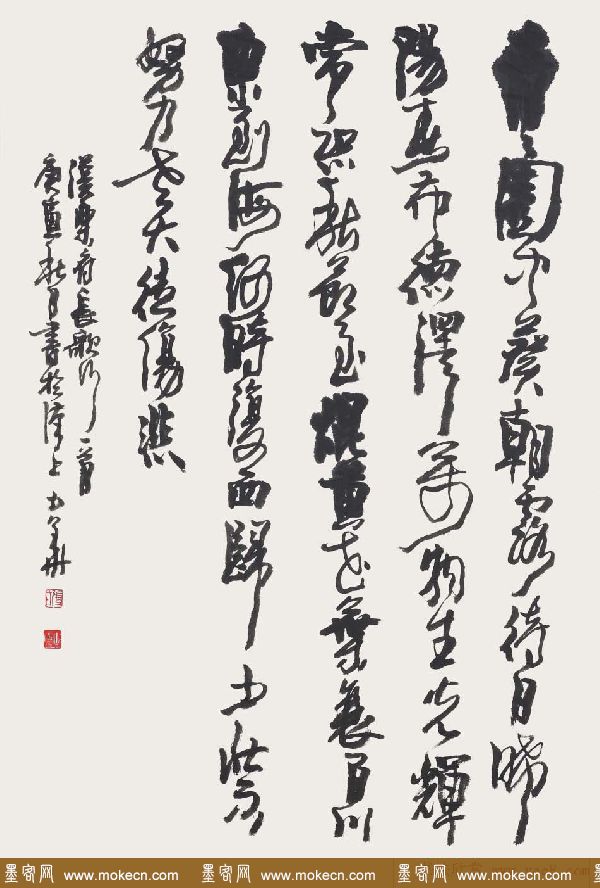 青青園中葵朝露待日晞
陽春布德澤萬物生光輝
常恐秋節至焜黃花葉衰百川
東到海何時復西歸少壯不
努力老大徒傷悲
漢樂府長歌行一首
庚寅秋月書於上
墨客网 www.mokecn.com 墨客网 www.mokecn.com 墨客网 www.mokecn.com 墨客网 www